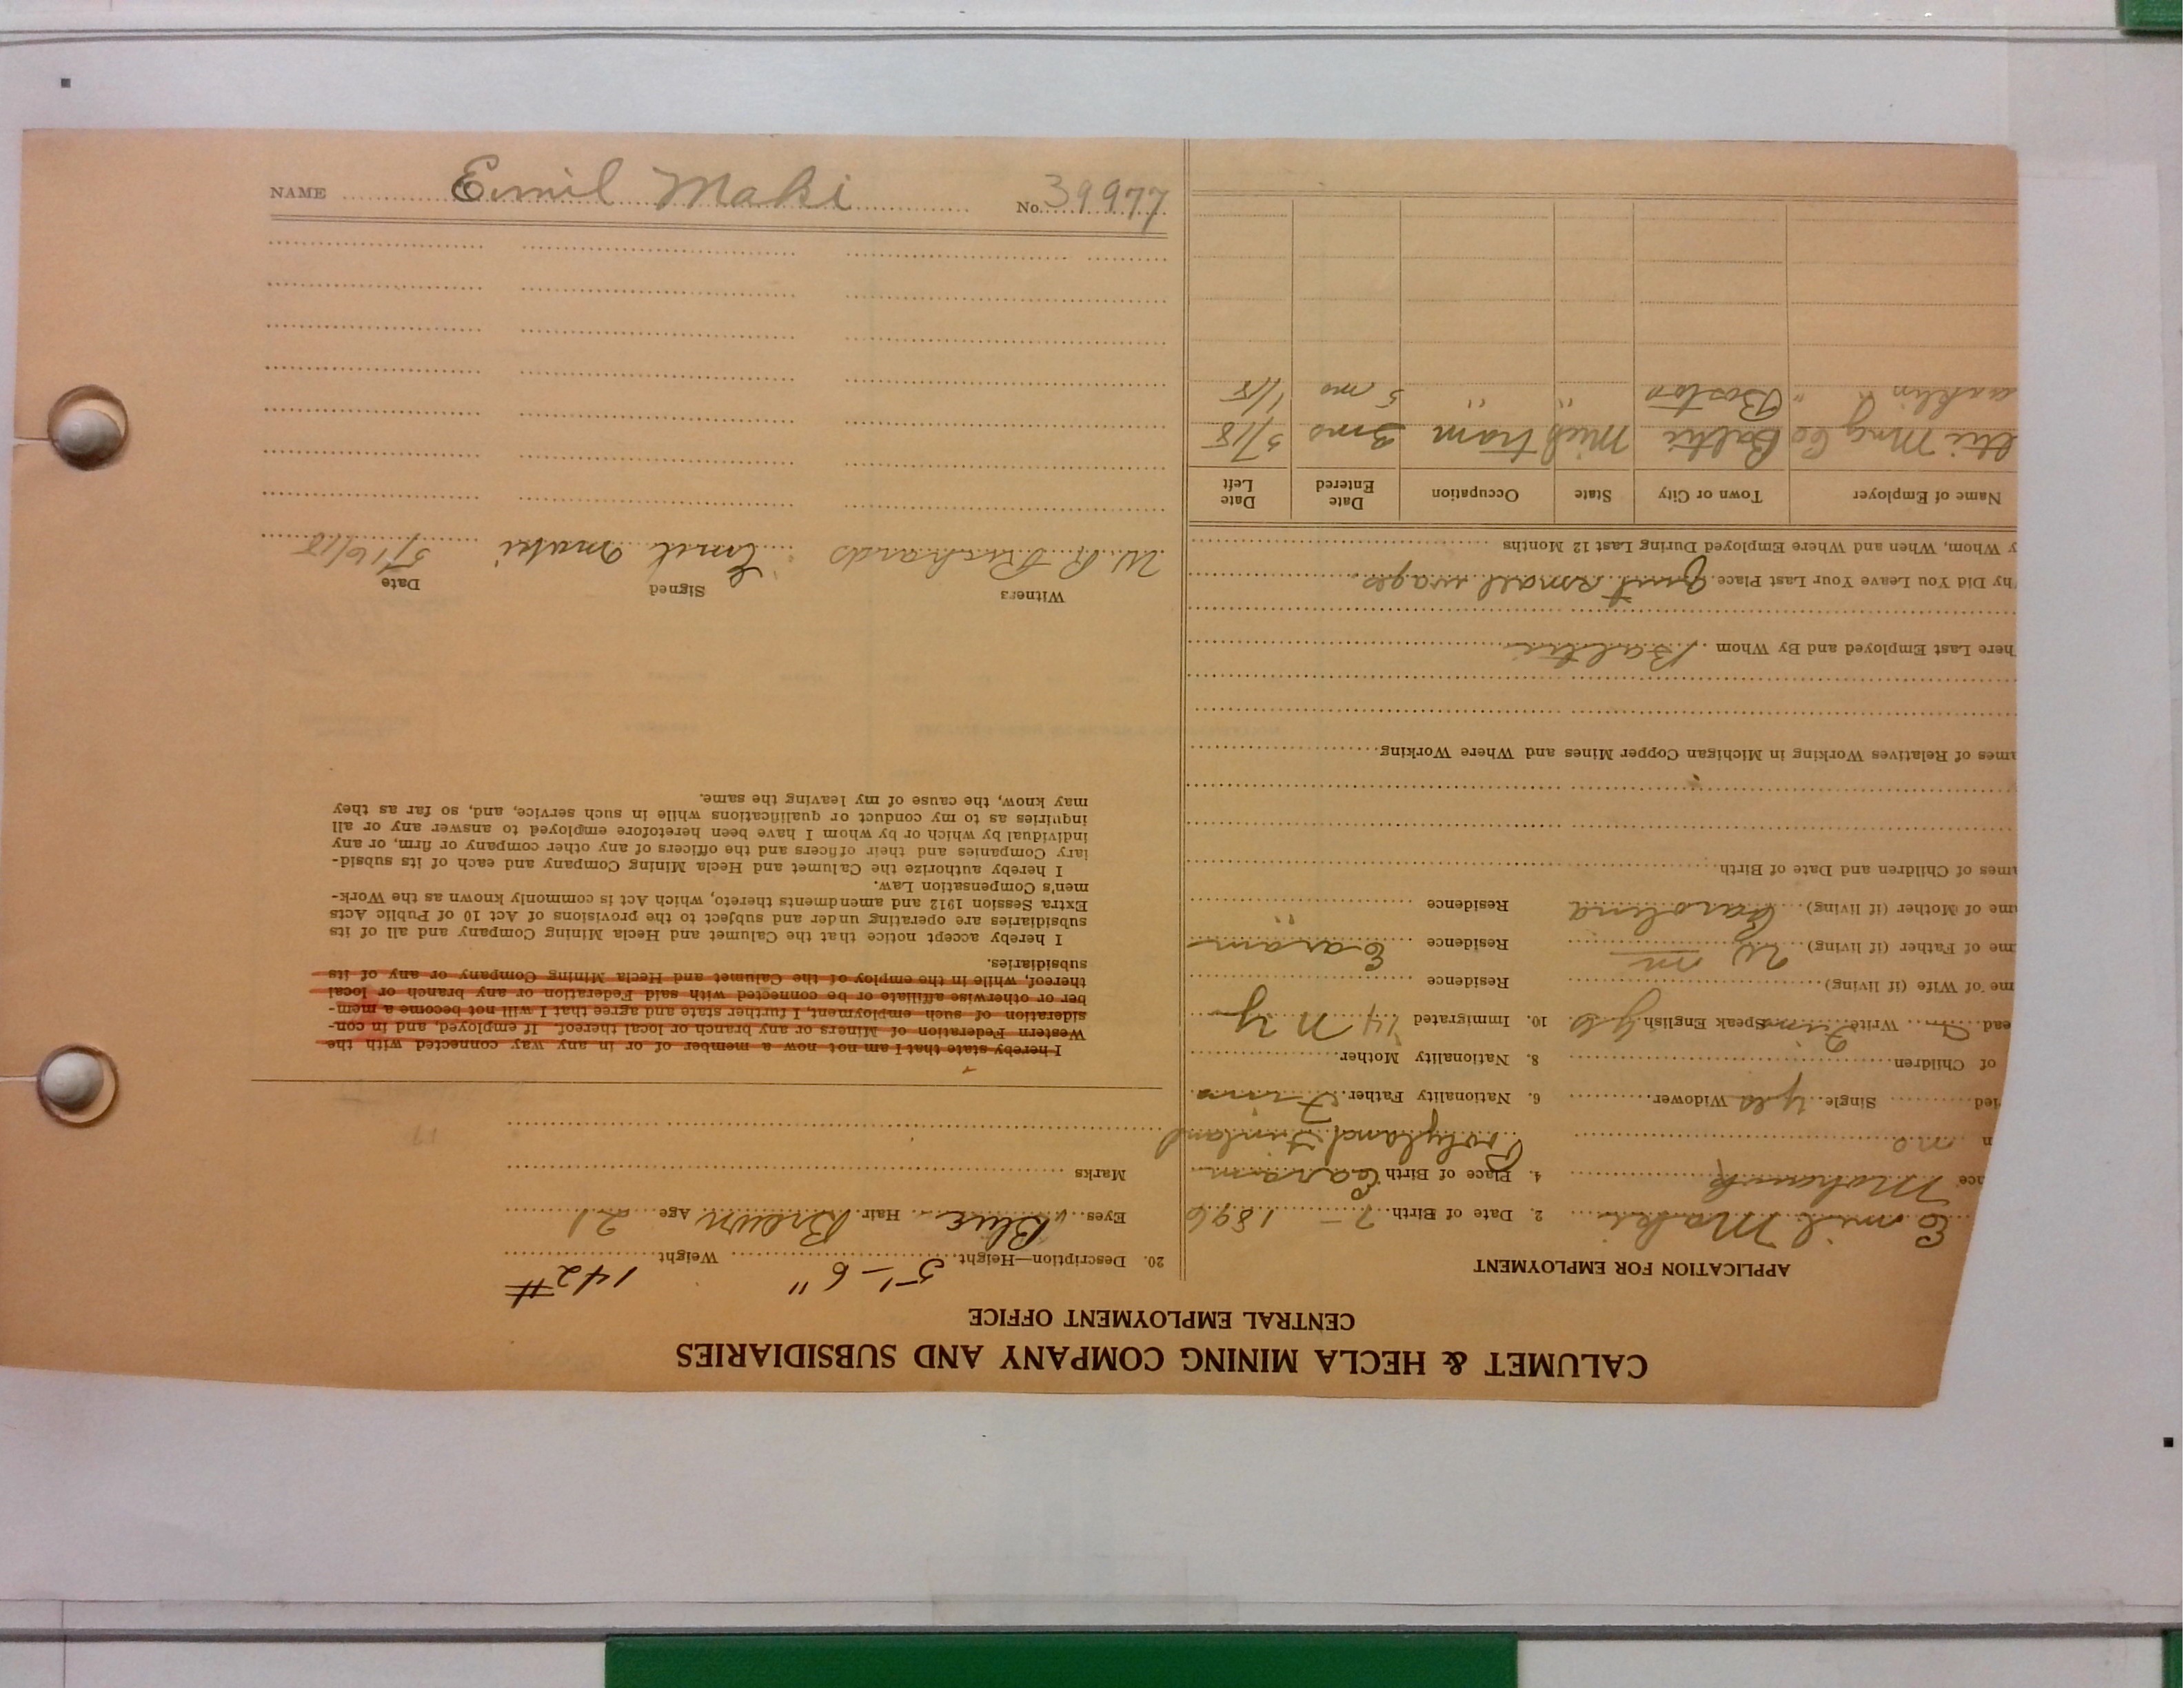 NAME Emil Maki No. 39977
CALUMET & HECLA MINING COMPANY AND SUBSIDIARIES
CENTRAL EMPLOYMENT OFFICE
APPLICATION FOR EMPLOYMENT
Emil Maki 2. Date of Birth 7 - 1896
Mohawk 4. Place of Birth
no Finland
Single yes Widower 6. Nationality Father Finn
of Children 8. Nationality Mother
Write Finn Speak English yes 10. Immigrated 14 N Y
me of Wife (if living) Residence
me of Father (if living) Wm Residence
me of Mother (if living) Carolina Residence "
ames of Children and Date of Birth
ames of Relatives Working in Michigan Copper Mines and Where Working
here Last Employed and By Whom Baltic
hy Did You Leave Your Last Place Quit small wages
y Whom, When and Where Employed During Last 12 Months
Name of Employer Town or City State Occupation Date Entered Date Left
ltic Mng Co Baltic Mich tram 3 mo 5/18
anklin " Boston " " 5 mo 1/18
20. Description—Height 5'-6" Weight 142#
Eyes Blue Hair Brown Age 21
Marks
I hereby state that I am not now a member of or in any way connected with the
Western Federation of Miners or any branch or local thereof. If employed, and in con-
sideration of such employment, I further state and agree that I will not become a mem-
ber or otherwise affiliate or be connected with said Federation or any branch or local
thereof, while in the employ of the Calumet and Hecla Mining Company or any of its
subsidiaries.
I hereby accept notice that the Calumet and Hecla Mining Company and all of its
subsidiaries are operating under and subject to the provisions of Act 10 of Public Acts
Extra Session 1912 and amendments thereto, which Act is commonly known as the Work-
men's Compensation Law.
I hereby authorize the Calumet and Hecla Mining Company and each of its subsid-
iary Companies and their officers and the officers of any other company or firm, or any
individual by which or by whom I have been heretofore employed to answer any or all
inquiries as to my conduct or qualifications while in such service, and, so far as they
may know, the cause of my leaving the same.
Witness Signed Date
W. R. Richards Emil Maki 5/16/18